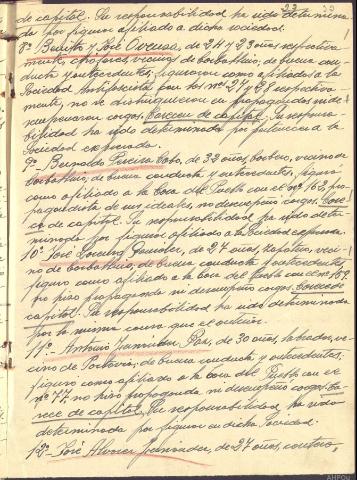 33
de capital. Su responsabilidad ha sido determina-
da por figurar afiliado a dicha sociedad.
8º Benito y José de 24 y 23 años respectiva-
mente, vecinos de Carballino, de buena con-
ducta y antecedentes, figuraron como afiliados a la
Sociedad Antifascista con los nos 27 y 28 respectiva-
mente, no se distinguieron en propagandas ni de-
sempeñaron cargos. Carecen de capital. Su responsa-
bilidad ha sido determinada por pertenecer a la
Sociedad expresada.
9º Bernardo Pereira Cobo, de 32 años, barbero, vecino de
Carballino, de buena conducta y antecedentes, figuró
como afiliado a la Casa del Pueblo con el nº 162, pro-
pagandista de sus ideales, no desempeñó cargos. Care-
ce de capital. Su responsabilidad ha sido deter-
minada por figurar afiliado a la Casa expresada.
10º José González, de 27 años, zapatero, veci-
no de Carballino, de buena conducta y antecedentes,
figuró como afiliado a la Casa del Pueblo con el nº 159,
no hizo propaganda ni desempeñó cargos. Carece de
capital. Su responsabilidad ha sido determinada
por la misma causa que el anterior.
11º Antonio Paz, de 30 años, labrador, ve-
cino de de buena conducta y antecedentes,
figuró como afiliado a la Casa del Pueblo con el
nº 77, no hizo propaganda ni desempeñó cargos. Ca-
rece de capital. Su responsabilidad ha sido
determinada por figurar en dicha Sociedad.
12º José Alvarez Fernández, de 27 años, cantero,
AHPOu